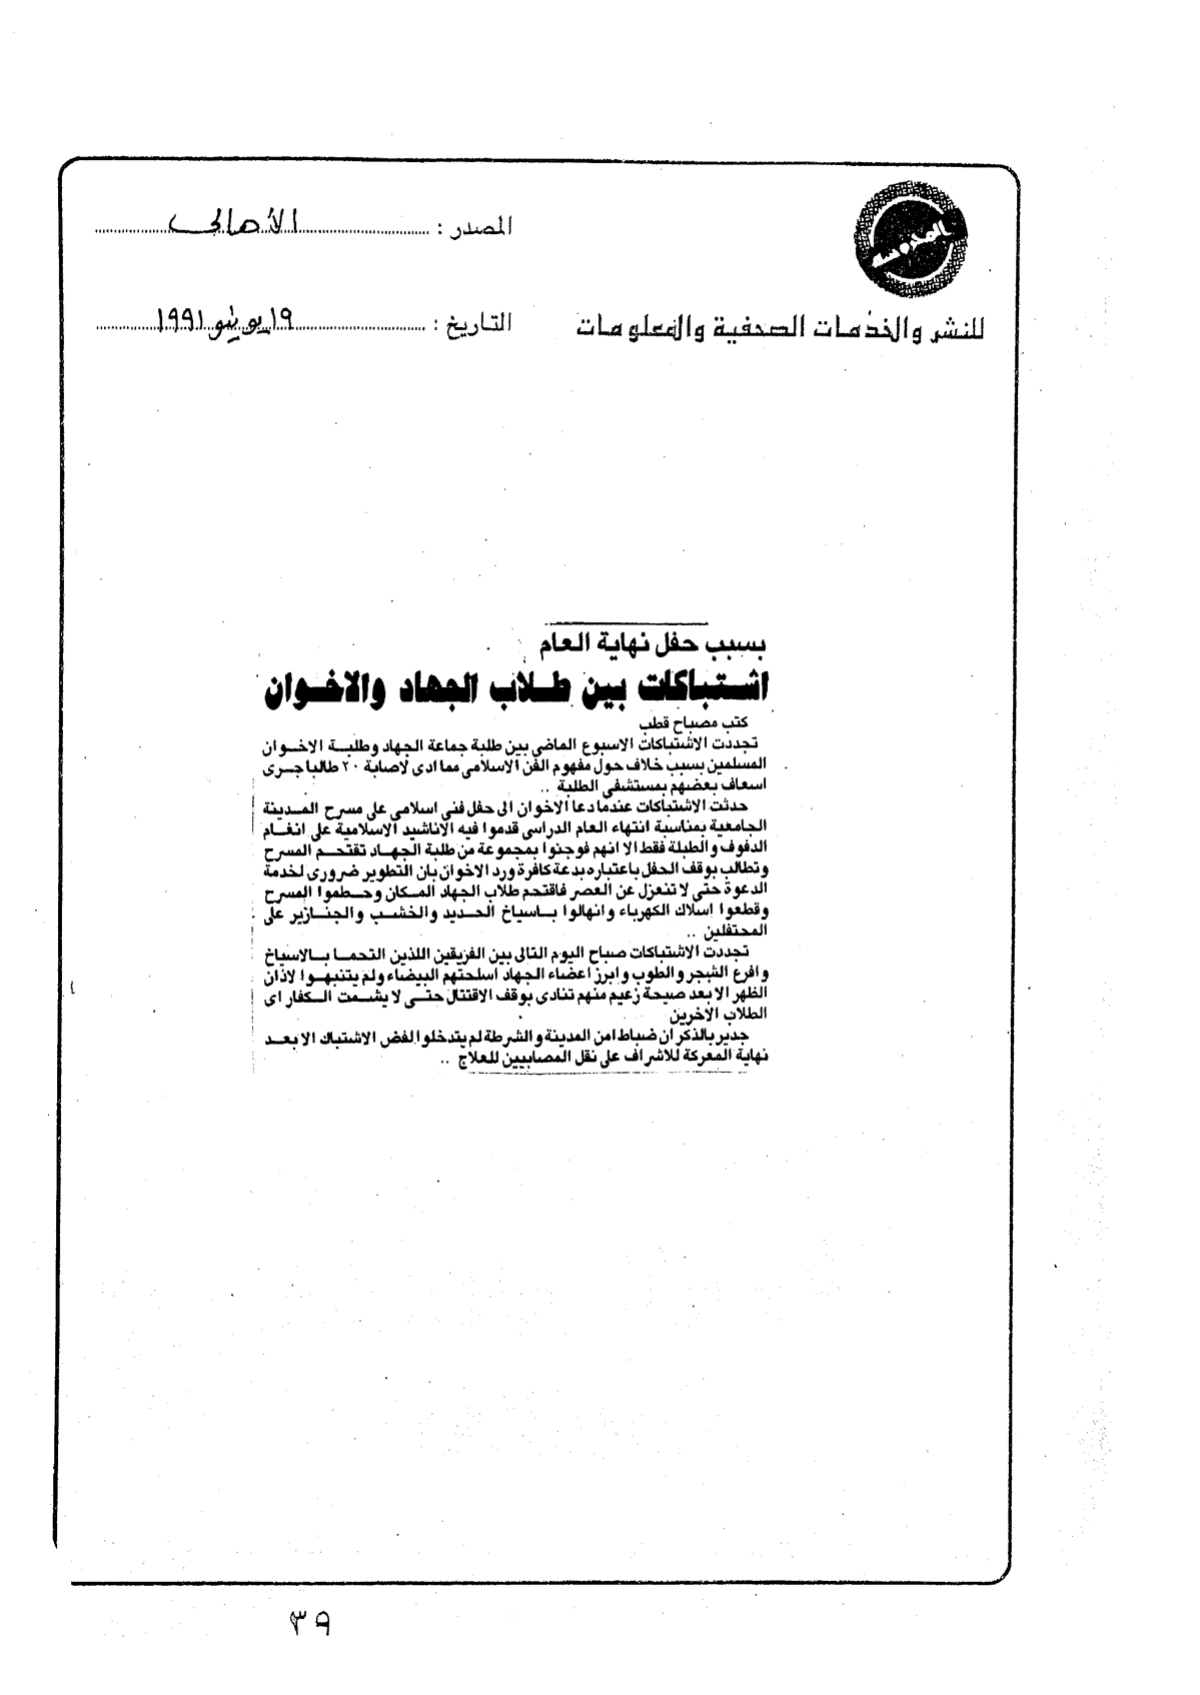 المصدر : الأهالى
التاريخ : ١٩ يونيو ١٩٩١
للنشر والخدمات الصحفية والمعلومات
بسبب حفل نهاية العام
اشتباكات بين طلاب الجهاد والاخوان
كتب مصباح قطب
تجددت الاشتباكات الاسبوع الماضى بين طلبة جماعة الجهاد وطلبة الاخوان
المسلمين بسبب خلاف حول مفهوم الفن الاسلامى مما ادى لاصابة ٢٠ طالبا جرى
اسعاف بعضهم بمستشفى الطلبة ..
حدثت الاشتباكات عندما دعا الاخوان الى حفل فنى اسلامى على مسرح المدينة
الجامعية بمناسبة انتهاء العام الدراسى قدموا فيه الاناشيد الاسلامية على انغام
الدفوف والطبلة فقط الا انهم فوجئوا بمجموعة من طلبة الجهاد تقتحم المسرح
وتطالب بوقف الحفل باعتباره بدعة كافرة ورد الاخوان بان التطوير ضرورى لخدمة
الدعوة حتى لا تنعزل عن العصر فاقتحم طلاب الجهاد المكان وحطموا المسرح
وقطعوا اسلاك الكهرباء وانهالوا باسياخ الحديد والخشب والجنازير على
المحتفلين ..
تجددت الاشتباكات صباح اليوم التالى بين الفريقين اللذين التحما بالاسياخ
وافرع الشجر والطوب وابرز اعضاء الجهاد اسلحتهم البيضاء ولم يتنبهوا لاذان
الظهر الا بعد صيحة زعيم منهم تنادى بوقف الاقتتال حتى لا يشمت الكفار اى
الطلاب الاخرين
جدير بالذكر ان ضباط امن المدينة والشرطة لم يتدخلوا لفض الاشتباك الا بعد
نهاية المعركة للاشراف على نقل المصابيين للعلاج ..
٣٩